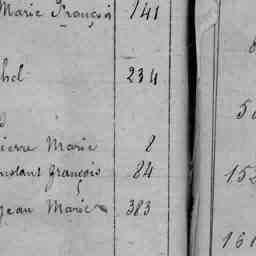 Marie François 141
hel 234
Pierre Marie 8
Constant françois 84
Jean Marie 383
152
161